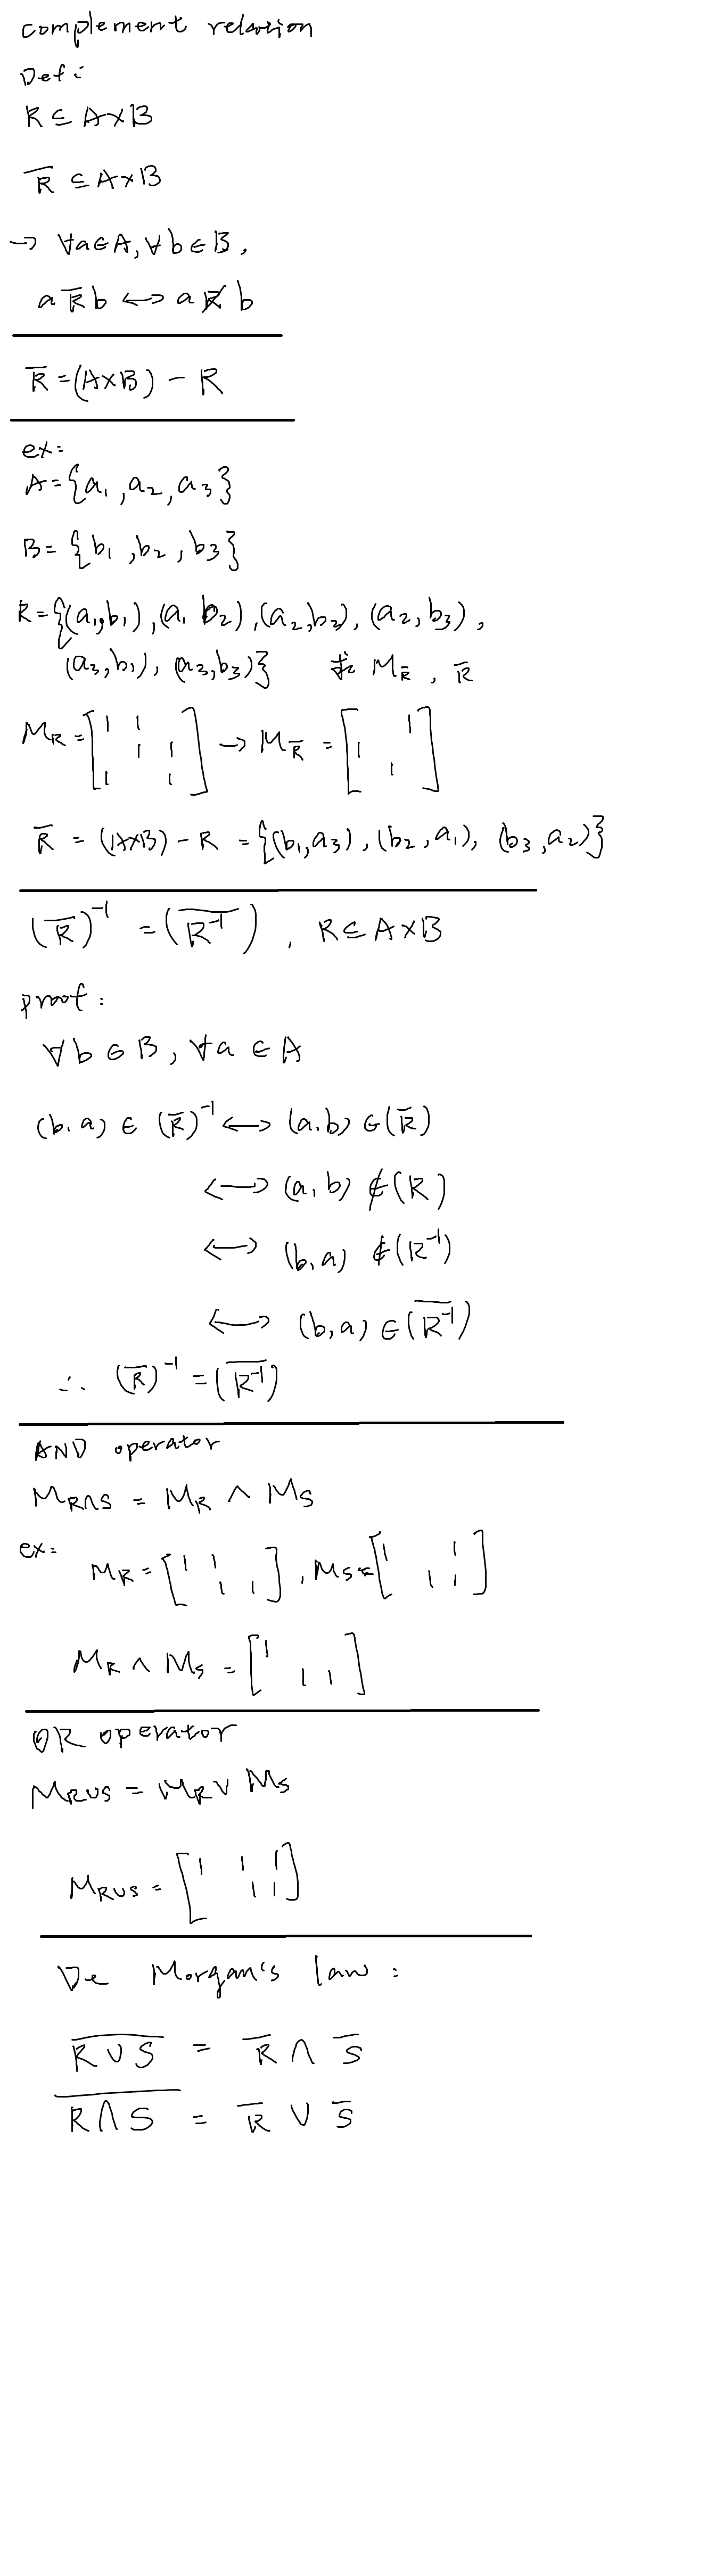 complement relation
Def:
R ⊆ A×B
R̅ ⊆ A×B
→ ∀a∈A, ∀b∈B,
a R̅ b ↔ a R̸ b
R̅ = (A×B) - R
ex:
A = {a₁, a₂, a₃}
B = {b₁, b₂, b₃}
R = {(a₁,b₁), (a₁ b₂), (a₂,b₂), (a₂,b₃),
(a₃,b₁), (a₃,b₃)} 求 M_R̅, R̅
M_R = [1 1 ; 1 1 ; 1 1] → M_R̅ = [1 ; 1 ; 1]
R̅ = (A×B) - R = {(b₁,a₃), (b₂,a₁), (b₃,a₂)}
(R̅)⁻¹ = (\overline{R⁻¹}), R ⊆ A×B
proof:
∀b∈B, ∀a∈A
(b,a) ∈ (R̅)⁻¹ ↔ (a,b) ∈ (R̅)
↔ (a,b) ∉ (R)
↔ (b,a) ∉ (R⁻¹)
↔ (b,a) ∈ (\overline{R⁻¹})
∴ (R̅)⁻¹ = (\overline{R⁻¹})
AND operator
M_{R∩S} = M_R ∧ M_S
ex: M_R = [1 1 ; 1 1], M_S = [1 1 ; 1 1]
M_R ∧ M_S = [1 ; 1 1]
OR operator
M_{R∪S} = M_R ∨ M_S
M_{R∪S} = [1 1 1 ; 1 1]
De Morgan's law:
\overline{R∪S} = R̅ ∩ S̅
\overline{R∩S} = R̅ ∪ S̅